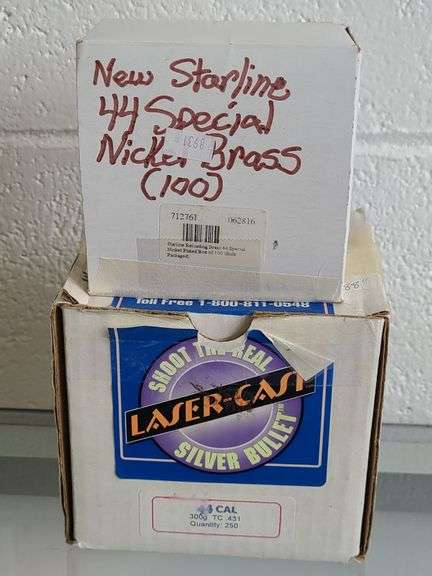 New Starline
44 Special
Nickel Brass
(100)
712761 062816
Starline Reloading Brass 44 Special
Nickel Plated Box of 100 (Bulk
Packaged)
Toll Free 1-800-811-0548
SHOOT THE REAL
LASER-CAST
SILVER BULLET™
44 CAL
300g TC .431
Quantity: 250